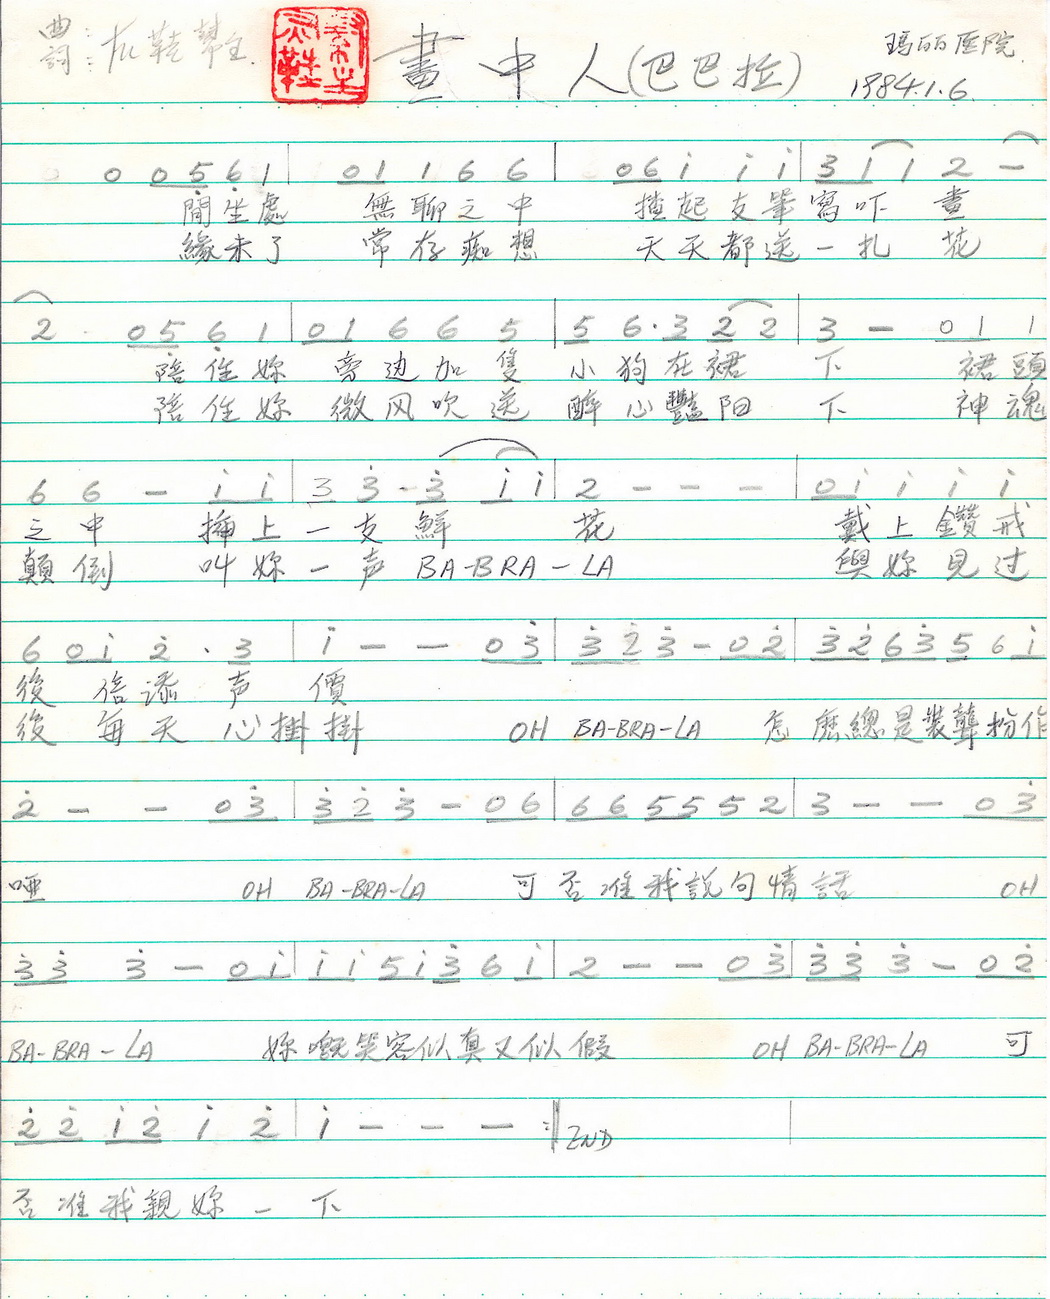 曲：
詞：尤鞋幫主
畫中人(巴巴拉)
瑪麗医院
1984.1.6.
0 0 5 6 1 | 0 1 1 6 6 | 0 6 i i i | 3 1 1 2 —
閒坐處 無聊之中 揸起支筆寫吓畫
緣未了 常存痴想 天天都送一扎花
2 · 0 5 6 1 | 0 1 6 6 5 | 5 6 · 3 2 2 | 3 — 0 1 1
陪住妳 旁边加隻 小狗在裙 下 裙頭
陪住妳 微风吹送 醉心豔阳 下 神魂
6 6 — i i | 3 3 · 3 i i | 2 — — — | 0 i i i i
之中 插上一支鮮 花 戴上鑽戒
顛倒 叫妳一声 BA-BRA-LA 與妳見过
6 0 i 2 · 3 | i — — 0 3 | 3 2 3 — 0 2 | 3 2 6 3 5 6 i
後 倍添声 價
後 每天心掛掛 OH BA-BRA-LA 怎麽總是裝聾扮作
2 — — 0 3 | 3 2 3 — 0 6 | 6 6 5 5 5 2 | 3 — — 0 3
啞 OH BA-BRA-LA 可否准我說句情話 OH
3 3 3 — 0 i | i i 5 i 3 6 i | 2 — — 0 3 | 3 3 3 — 0 2
BA-BRA-LA 妳嘅笑容似真又似假 OH BA-BRA-LA 可
2 2 i 2 i 2 | i — — — :‖ END
否准我親妳一下